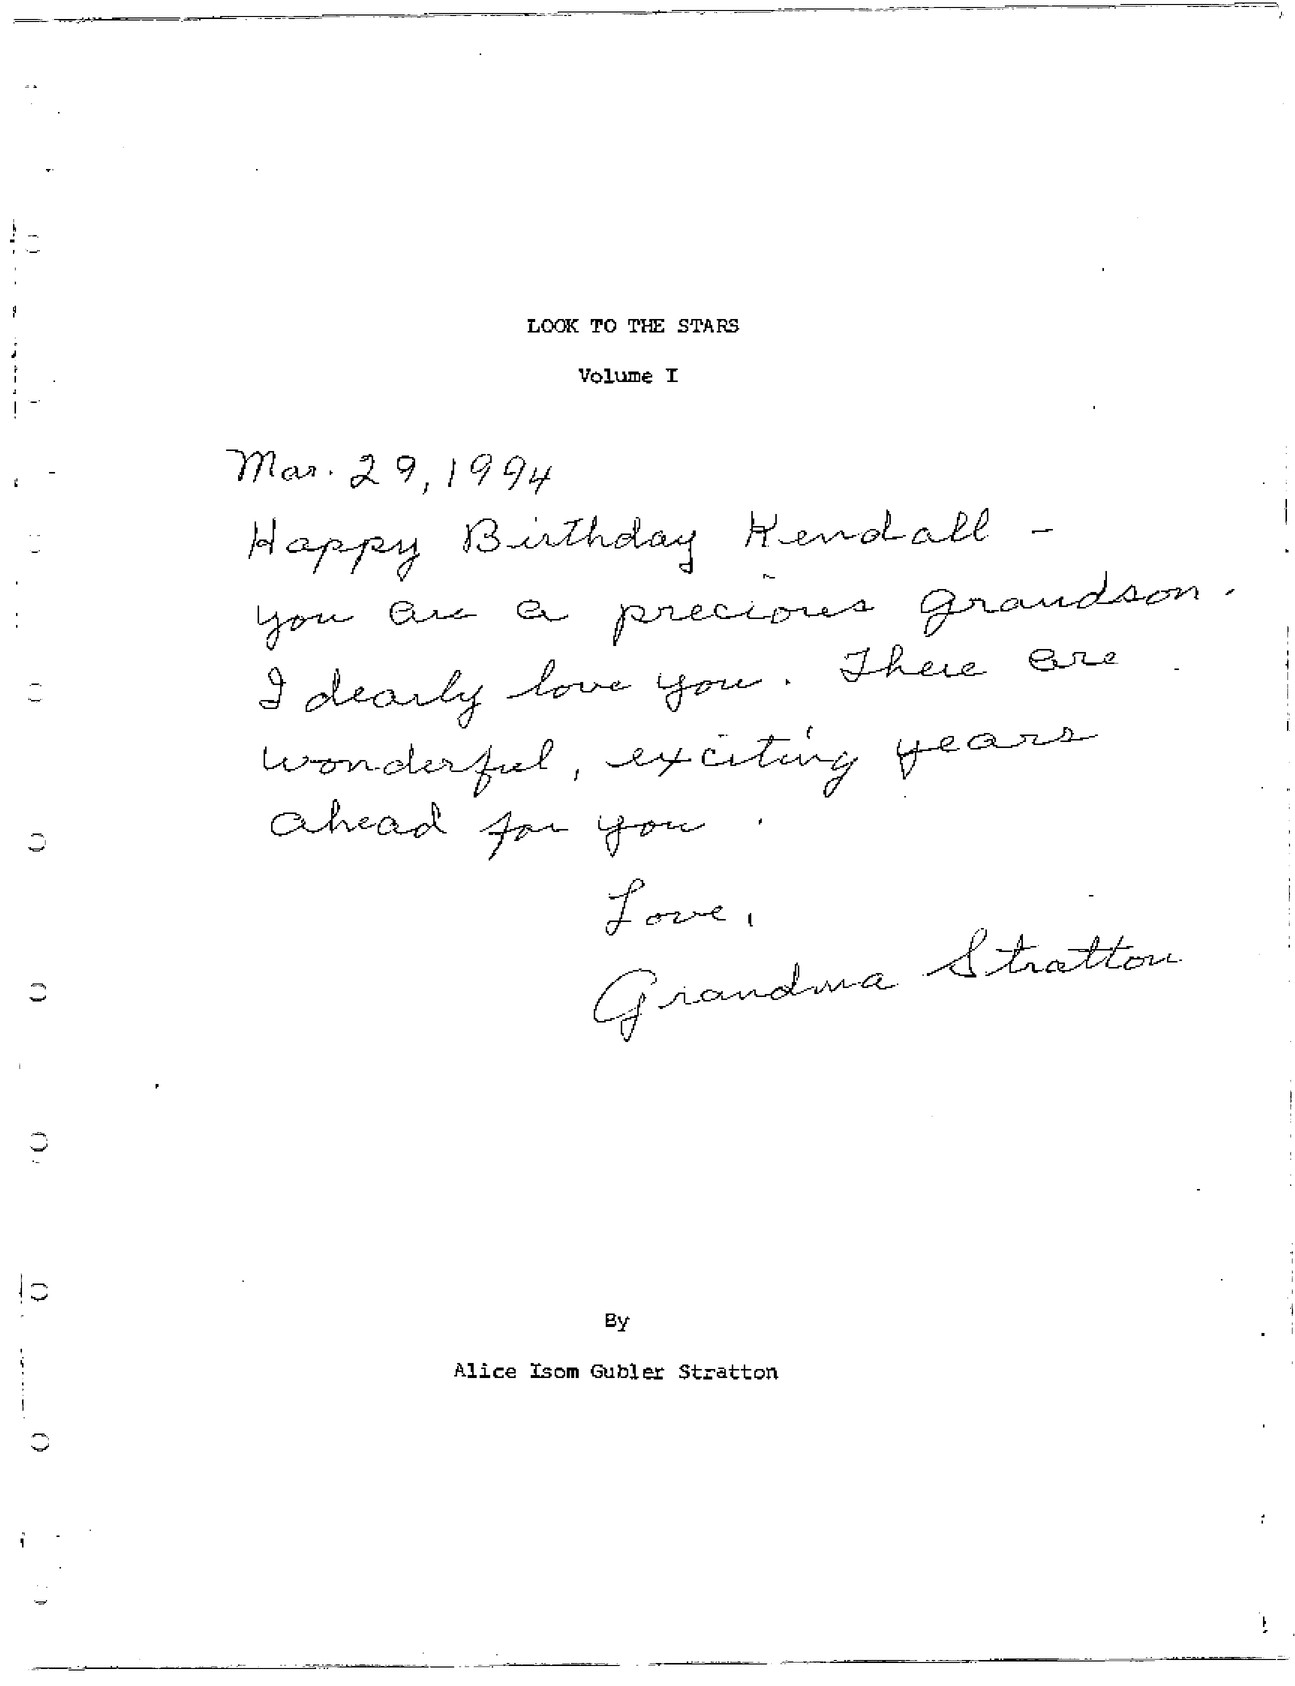 LOOK TO THE STARS
Volume I
Mar. 29, 1994
Happy Birthday Kendall -
you are a precious grandson.
I dearly love you. There are
wonderful, exciting years
ahead for you.
Love,
Grandma Stratton
By
Alice Isom Gubler Stratton